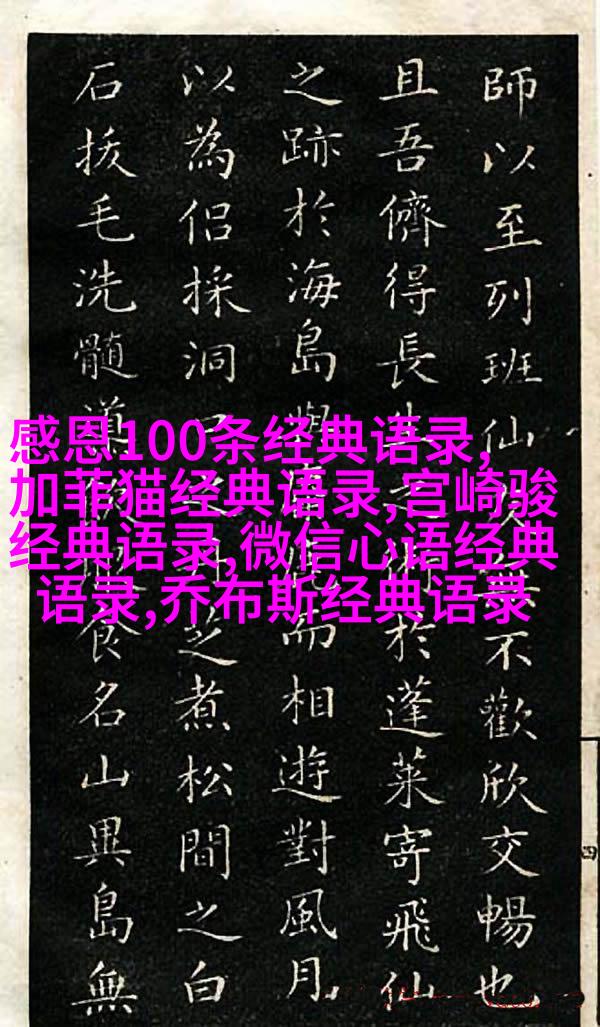 感恩100条经典语录,
加菲猫经典语录,宫崎骏
经典语录,微信心语经典
语录,乔布斯经典语录
師以至列班仙不歡欣交暢也
且吾儕得長於蓬萊寄飛仙
之跡於海島而相遊對風月
以為侶採洞芝煮松間之白
石拔毛洗髓食名山異島無
四